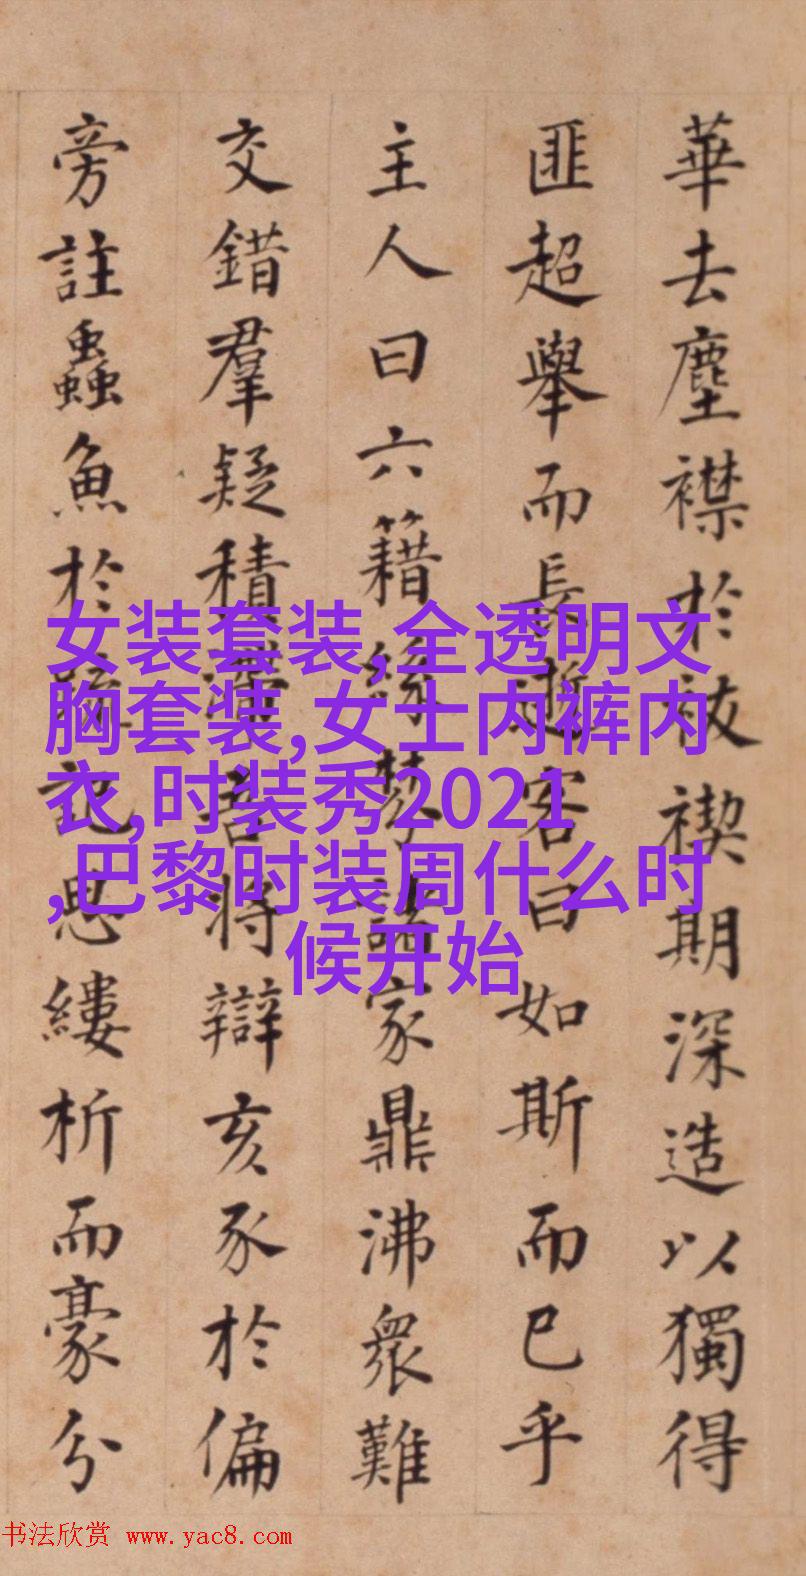 華去塵襟於祓禊期深造以獨得
匪超舉而長客曰如斯而已乎
主人曰六籍諸家鼎沸眾難
交錯羣疑積滯吾將辯亥豕於偏
旁註蟲魚於記思縷析而豪分
女装套装,全透明文
胸套装,女士内裤内
衣,时装秀2021
,巴黎时装周什么时
候开始
书法欣赏 www.yac8.com